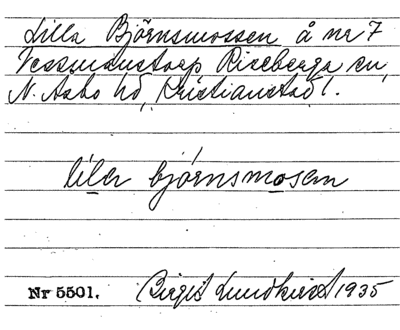 Lilla Björnsmossen å nr 7
Vessmanstorp Riseberga sn,
N. Åsbo hd, Kristianstad l.
lila bjórnsmosen
Nr 5501. Birgit Lundkvist 1935